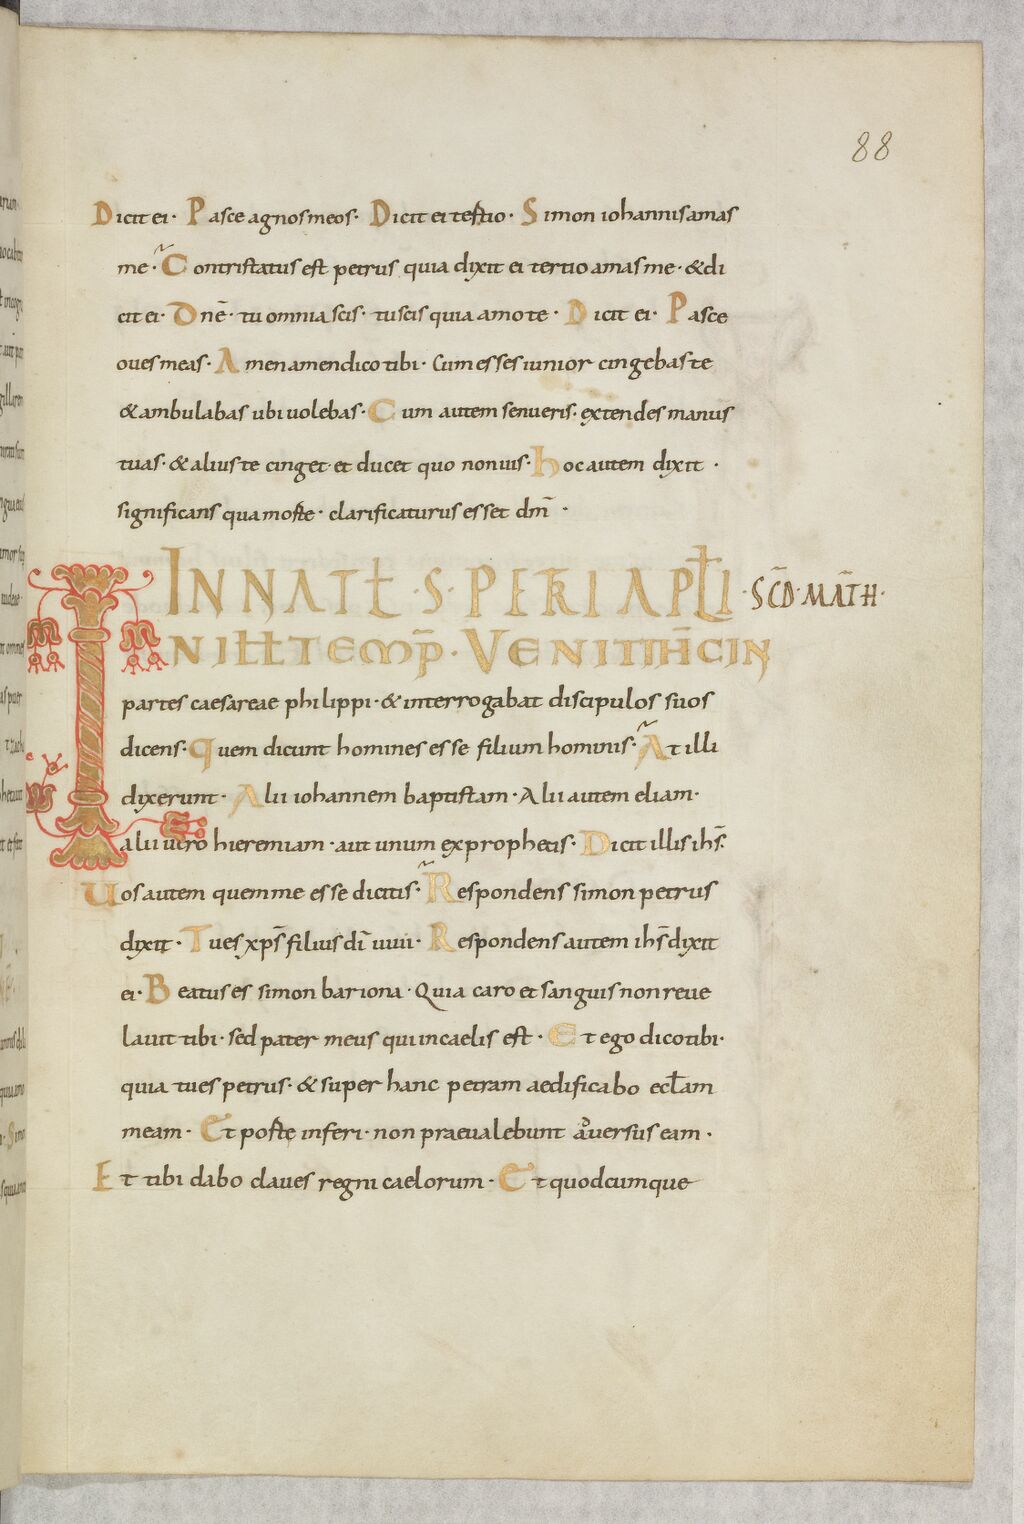 88
Dicit ei · Pasce agnos meos · Dicit ei tertio · Simon iohannis amas
me · Contristatus est petrus quia dixit ei tertio amas me · & di
cit ei · Dnē · tu omnia scis · tu scis quia amo te · Dicit ei · Pasce
oues meas · Amen amen dico tibi · Cum esses iunior cingebas te
& ambulabas ubi uolebas · Cum autem senueris · extendes manus
tuas · & alius te cinget · et ducet quo non uis · Hoc autem dixit ·
significans qua morte · clarificaturus esset dm̄ ·
IN NATL̄ · S · PETRI APLI · SCD̄ · MATH̄ ·
IN ILL̄ TEMP̄ · VENIT IHC̄ IN
partes caesareae philippi · & interrogabat discipulos suos
dicens · Quem dicunt homines esse filium hominis · At illi
dixerunt · Alii iohannem baptistam · Alii autem eliam ·
alii uero hieremiam · aut unum ex prophetis · Dicit illis ihs̄ ·
Uos autem quem me esse dicitis · Respondens simon petrus
dixit · Tu es xps̄ filius dī uiui · Respondens autem ihs̄ dixit
ei · Beatus es simon bariona · Quia caro et sanguis non reue
lauit tibi · sed pater meus qui in caelis est · Et ego dico tibi ·
quia tu es petrus · & super hanc petram aedificabo eccl̄am
meam · Et porte inferi · non praeualebunt aduersus eam ·
Et tibi dabo claues regni caelorum · Et quodcumque